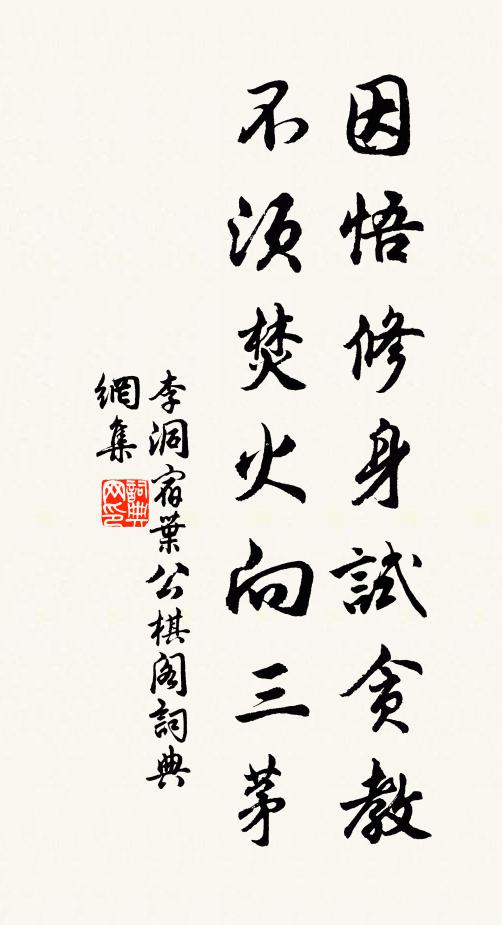 因悟修身試貪教
不須焚火向三茅
李洞宿葉公棋閣詞典
網集
詞典網印